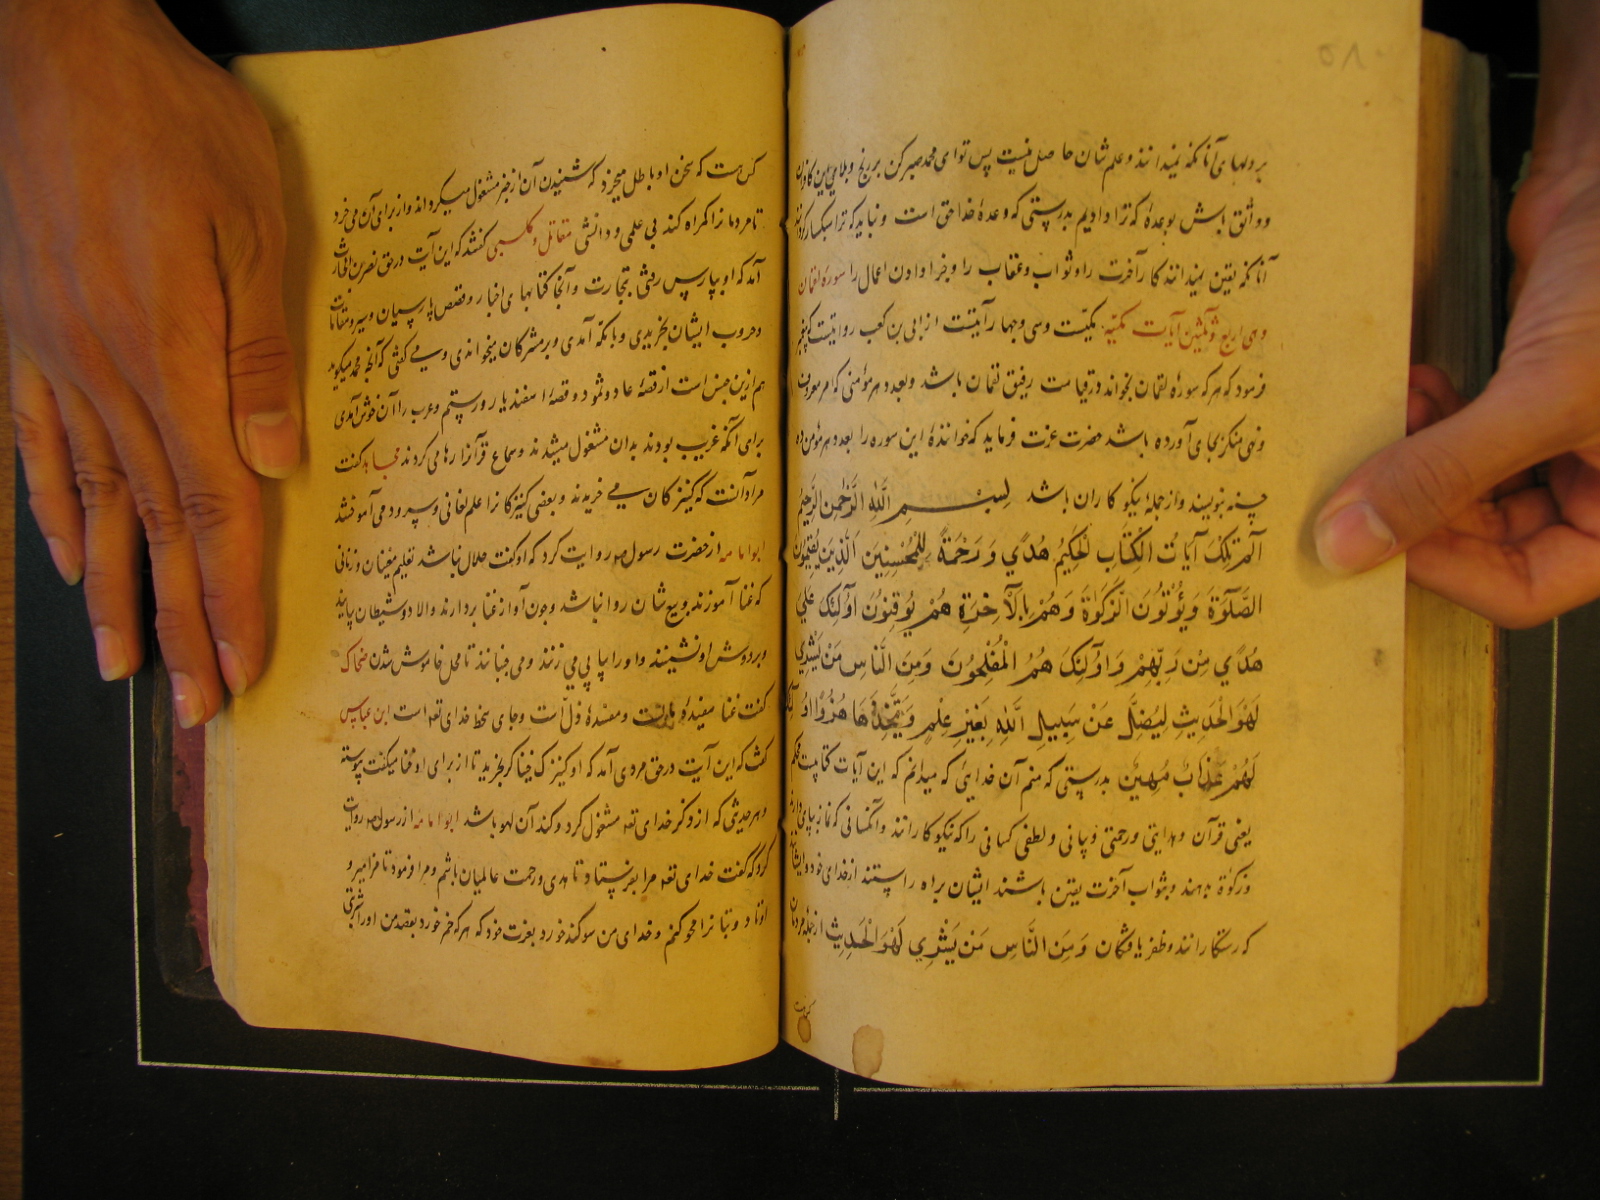 ۵۸۰
بر دلهای آنانکه نمیدانند و علم شان حاصل نیست پس تو ای محمد صبر کن بر رنج و بلای این کافران
و واثق باش بوعدهٔ که ترا دادیم بدرستی که وعدهٔ خدا حق است و نباید که ترا سبکسار کنند
آنانکه یقین نمیدانند کار آخرت را و ثواب و عقاب را و جزا دادن اعمال را سوره لقمان
وهی اربع و ثلثین آیات مکیّه مکیّت وسی و چهار آیتست از ابی بن کعب روایتست که پیغمبر
فرمود که هر که سورهٔ لقمان بخواند در قیامت رفیق لقمان باشد و بعدد هر مؤمنی که امر معروف
و نهی منکر بجای آورده باشد حضرت عزت فرماید که خوانندهٔ این سوره را بعدد هر مؤمن ده
حسنه بنویسند و از جملهٔ نیکوکاران باشد بِسْمِ اللّٰهِ الرَّحْمٰنِ الرَّحِیْمِ
الٓمٓ تِلْكَ آيَاتُ الْكِتَابِ الْحَكِيْمِ هُدًي وَ رَحْمَةً لِلْمُحْسِنِينَ الَّذِينَ يُقِيْمُونَ
الصَّلٰوةَ وَيُؤْتُوْنَ الزَّكٰوةَ وَهُمْ بِالْاٰخِرَةِ هُمْ يُوقِنُوْنَ اُولٰٓئِكَ عَلٰي
هُدًي مِنْ رَبِّهِمْ وَاُولٰٓئِكَ هُمُ الْمُفْلِحُوْنَ وَمِنَ النَّاسِ مَنْ يَشْتَرِي
لَهْوَ الْحَدِيْثِ لِيُضِلَّ عَنْ سَبِيلِ اللّٰهِ بِغَيْرِ عِلْمٍ وَيَتَّخِذَهَا هُزُوًا اُولٰٓئِكَ
لَهُمْ عَذَابٌ مُهِيْنٌ بدرستی که منم آن خدایی که میدانم که این آیات کتابیست محکم
یعنی قرآن و هدایتی و رحمتی و بیانی و لطفی کسانی را که نیکوکارانند و آنکسانی که نماز بپای دارند
و زکوٰة بدهند و بثواب آخرت یقین باشند ایشان براه راستند از خدای خود و ایشانند
که رستگارانند و ظفر یافتگان وَمِنَ النَّاسِ مَنْ يَشْتَرِي لَهْوَ الْحَدِيْثِ از جمله مردمان
کس هست
کس هست که سخن او باطل میخرد که شنیدن آن از خیر مشغول میگرداند و از برای آن می خرد
تا مردمانرا گمراه کند بی علمی و دانشی مقاتل و کلبی گفتند که این آیت در حق نضر بن الحارث
آمد که او بپارس رفتی بتجارت و آنجا کتابهای اخبار و قصص پارسیان و سیر و مقامات
و حروب ایشان بخریدی و با مکه آمدی و بر مشرکان میخواندی و می گفتی که آنچه محمد میگوید
هم ازین جنس است از قصهٔ عاد و ثمود و قصهٔ اسفندیار و رستم و عرب را آن خوش آمدی
برای آنکه غریب بودند بدان مشغول میشدند و سماع قرآنرا رها می کردند مجاهد گفت
مراد آنست که کنیزکان می خریدند و بعضی کنیزکانرا علم اغانی و سرود می آموختند
ابو امامه از حضرت رسول ص روایت کرد که او گفت حلال نباشد تعلیم مغنیان و زنانی
که غنا آموزند و بیع شان روا نباشد و چون آواز غنا بردارند والا دو شیطان بیایند
و بر دوش او نشینند و او را پیاپی می زنند و می جنبانند تا محل خاموش شدن ضحاک
گفت غنا مفسدهٔ مالست و مفسدهٔ دل است و جای سخط خدای تعه است ابن عباس
گفت که این آیت در حق مردی آمد که او کنیزک غناگر بخرید تا از برای او غنا میگفت پیوسته
و هر حدیثی که از ذکر خدای تعه مشغول کرد و کند آن لهو باشد ابو امامه از رسول ص روایت
کرد که گفت خدای تعه مرا بفرستاد تا هدی و رحمت عالمیان باشم و مرا فرمود تا مزامیر و
اوتاد و بتانرا محو کنم و خدای من سوگند خورد بعزت خود که هر که خمر خورد بعقد من او را شربتی